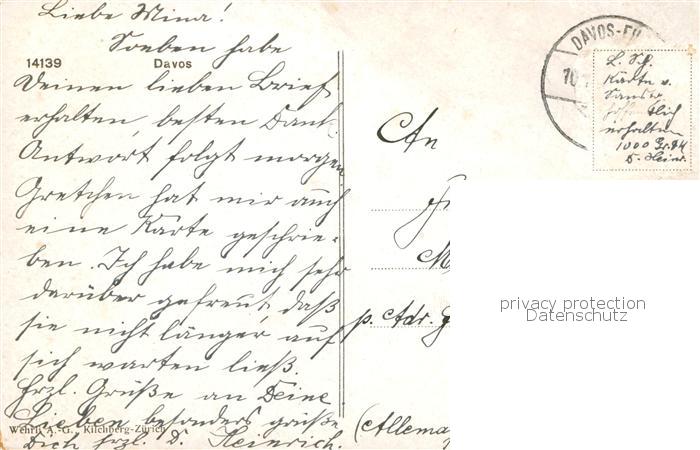 Liebe Mina!
Soeben habe
14139 Davos
Deinen lieben Brief
erhalten, besten Dank.
Antwort folgt morgen.
Gretchen hat mir auch
eine Karte geschrie-
ben. Ich habe mich sehr
darüber gefreut, daß
sie nicht länger auf
sich warten ließ.
Hrzl. Grüße an Deine
Lieben, besonders grüße
Dich hrzl. D. Heinrich.
Wehrli A.-G., Kilchberg-Zürich
DAVOS-
10
L. Sch.
Karte v.
erhalten
1000 Gr.
D. Heinr.
An
Fr
M
p. Adr. G
(Allema
privacy protection
Datenschutz